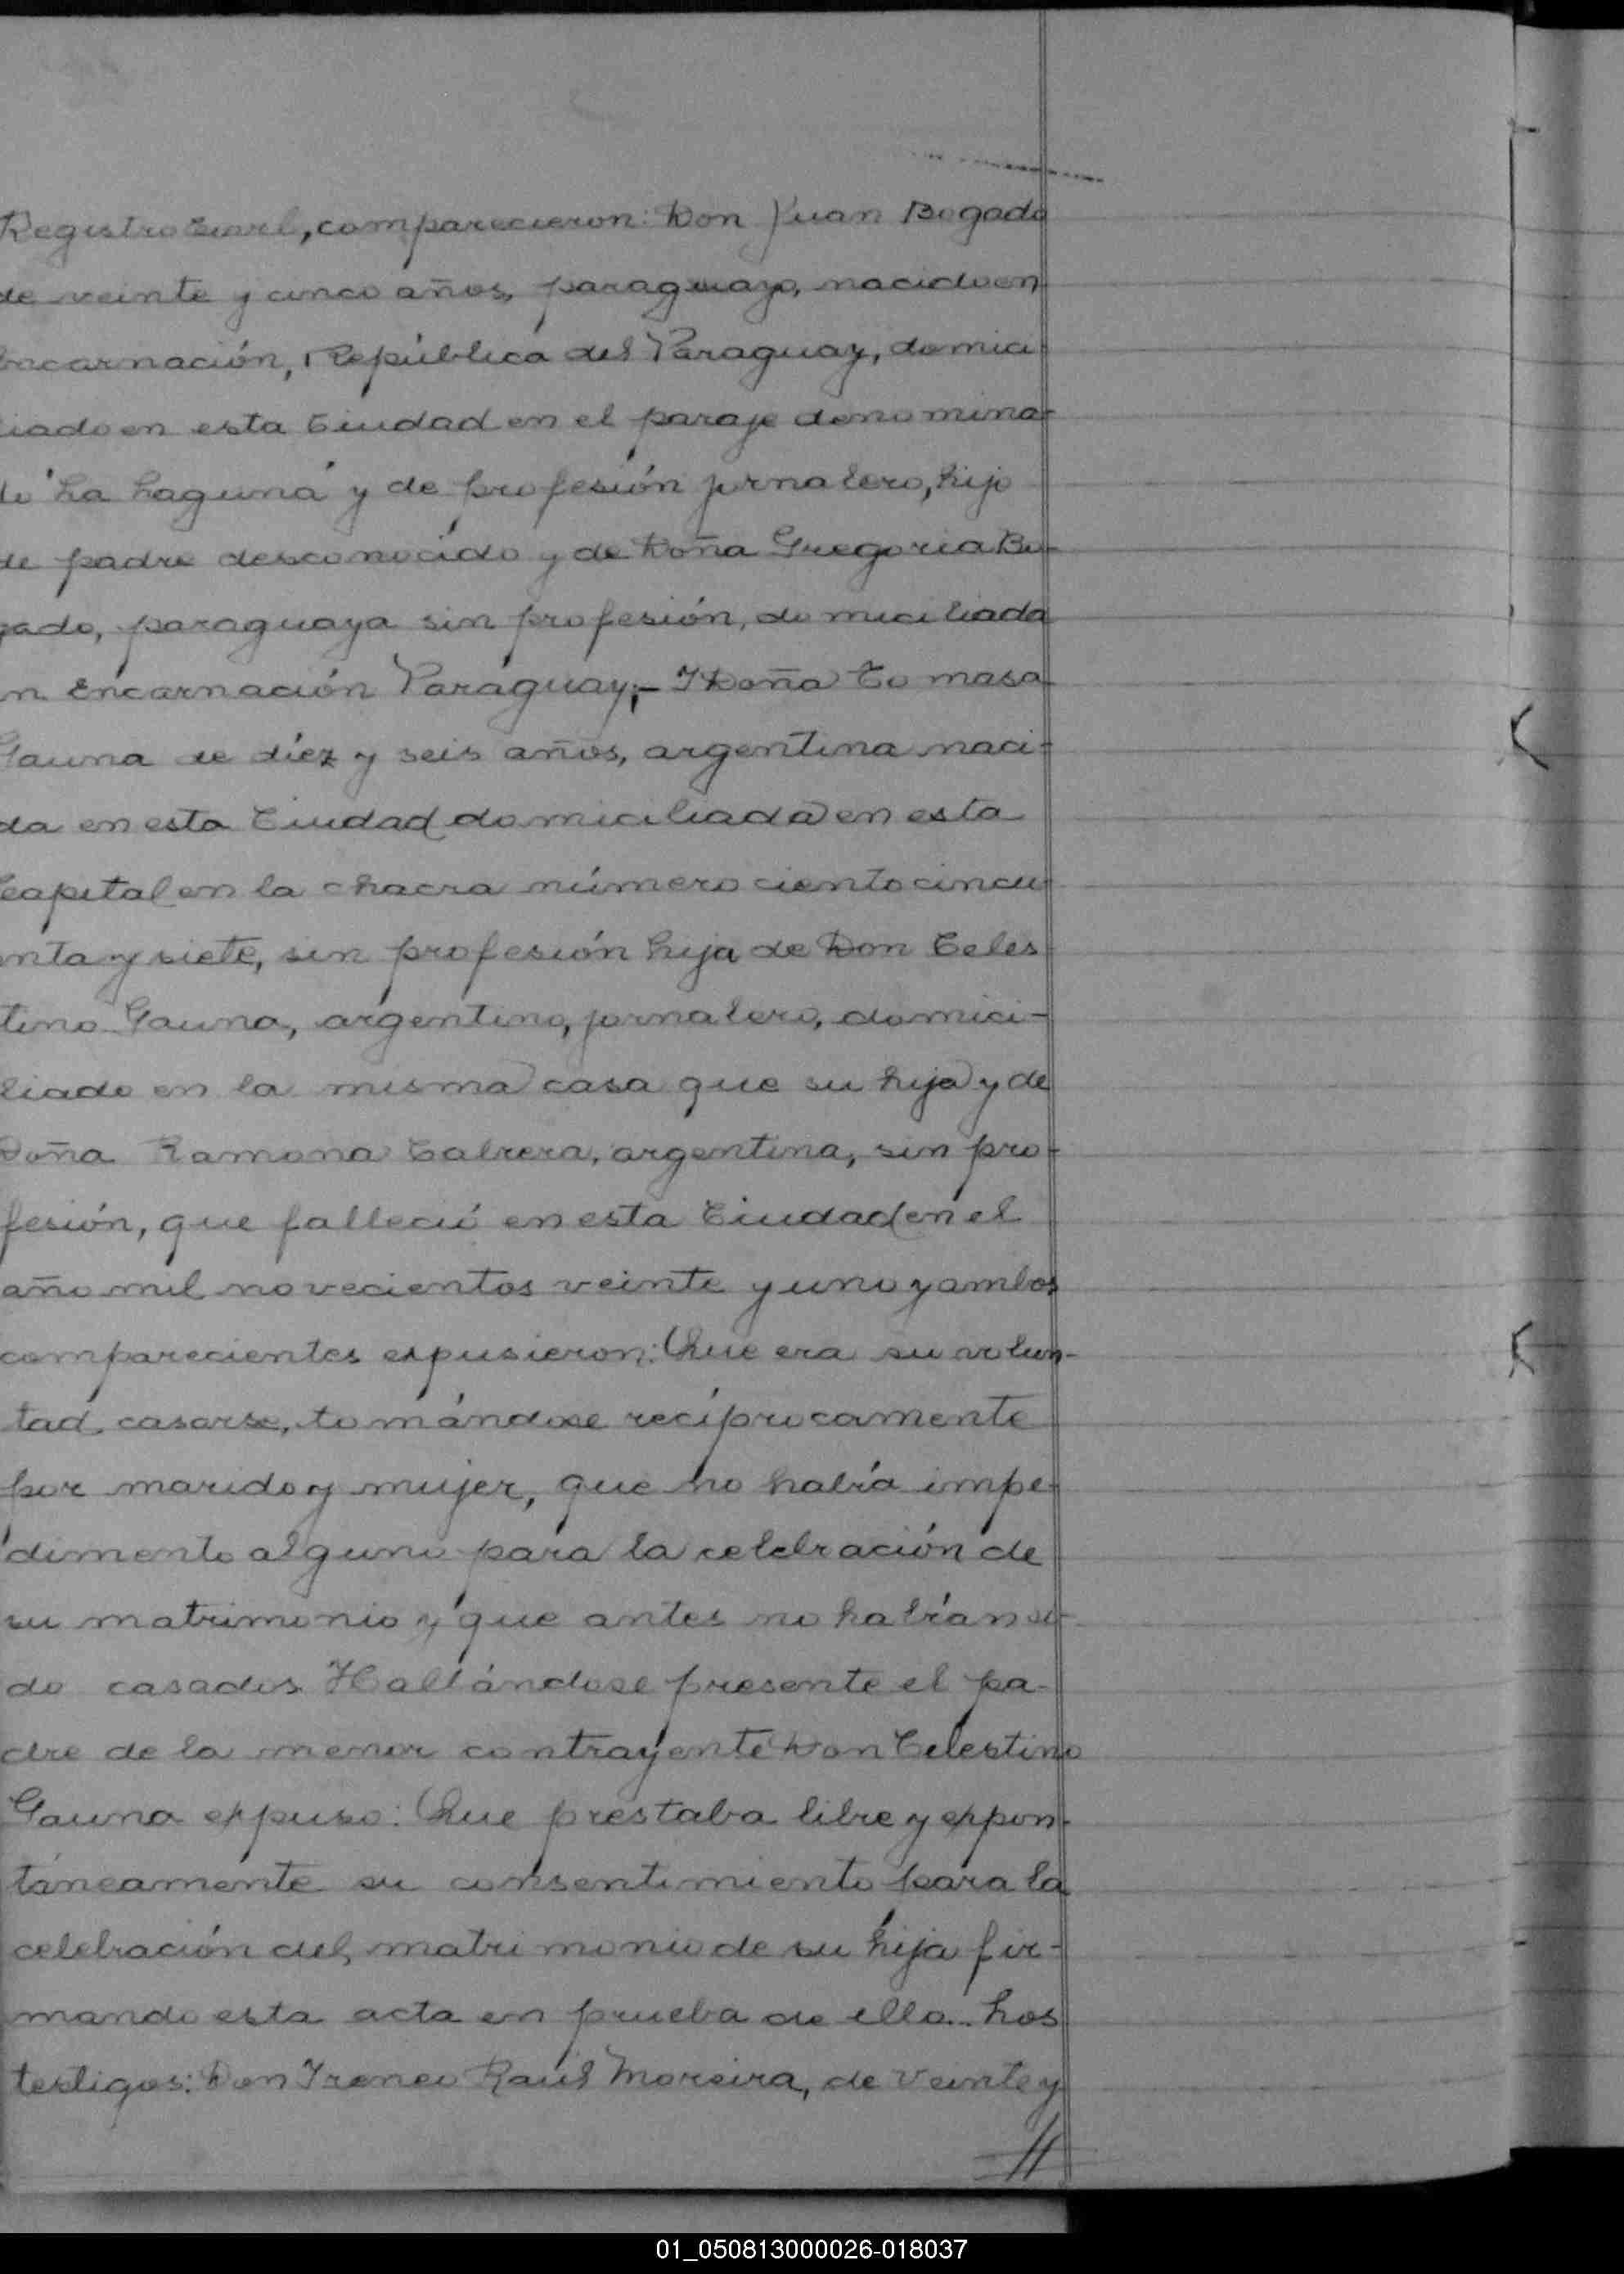 Registro Civil, comparecieron: Don Juan Bogado
de veinte y cinco años, paraguayo, nacido en
Encarnación, República del Paraguay, domici
liado en esta Ciudad en el paraje denomina-
do "La Laguna" y de profesión jornalero, hijo
de padre desconocido y de Doña Gregoria Bo-
gado, paraguaya sin profesión, domiciliada
en Encarnación Paraguay;- Y Doña Tomasa
Gauna de diez y seis años, argentina naci-
da en esta Ciudad domiciliada en esta
Capital en la chacra número ciento cincu-
enta y siete, sin profesión hija de Don Celes
tino Gauna, argentino, jornalero, domici-
liado en la misma casa que su hija y de
Doña Ramona Cabrera, argentina, sin pro-
fesión, que falleció en esta Ciudad en el
año mil novecientos veinte y uno y ambos
comparecientes expusieron: Que era su volun-
tad casarse, tomándose recíprocamente
por marido y mujer, que no había impe-
dimento alguno para la celebración de
su matrimonio y que antes no habían si-
do casados. Hallándose presente el pa-
dre de la menor contrayente Don Celestino
Gauna expuso: Que prestaba libre y expon-
táneamente su consentimiento para la
celebración del matrimonio de su hija fir-
mando esta acta en prueba de ello. Los
testigos: Don Ireneo Raúl Moreira, de veinte y
//
01_050813000026-018037